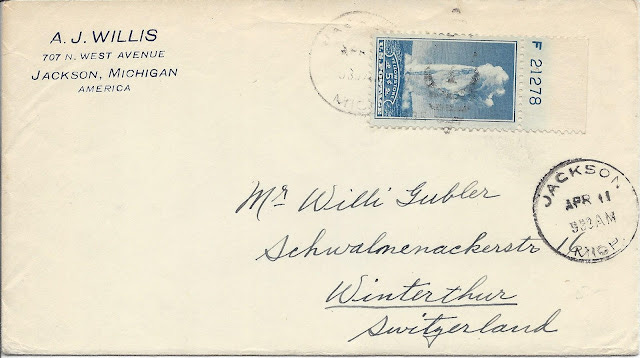 A. J. WILLIS
707 N. WEST AVENUE
JACKSON, MICHIGAN
AMERICA
YELLOWSTONE
5¢
U.S. POSTAGE
F 21278
JACKSON
APR 11
MICH.
Mr Willi Gubler
Schwalmenackerstr 16
Winterthur
Switzerland